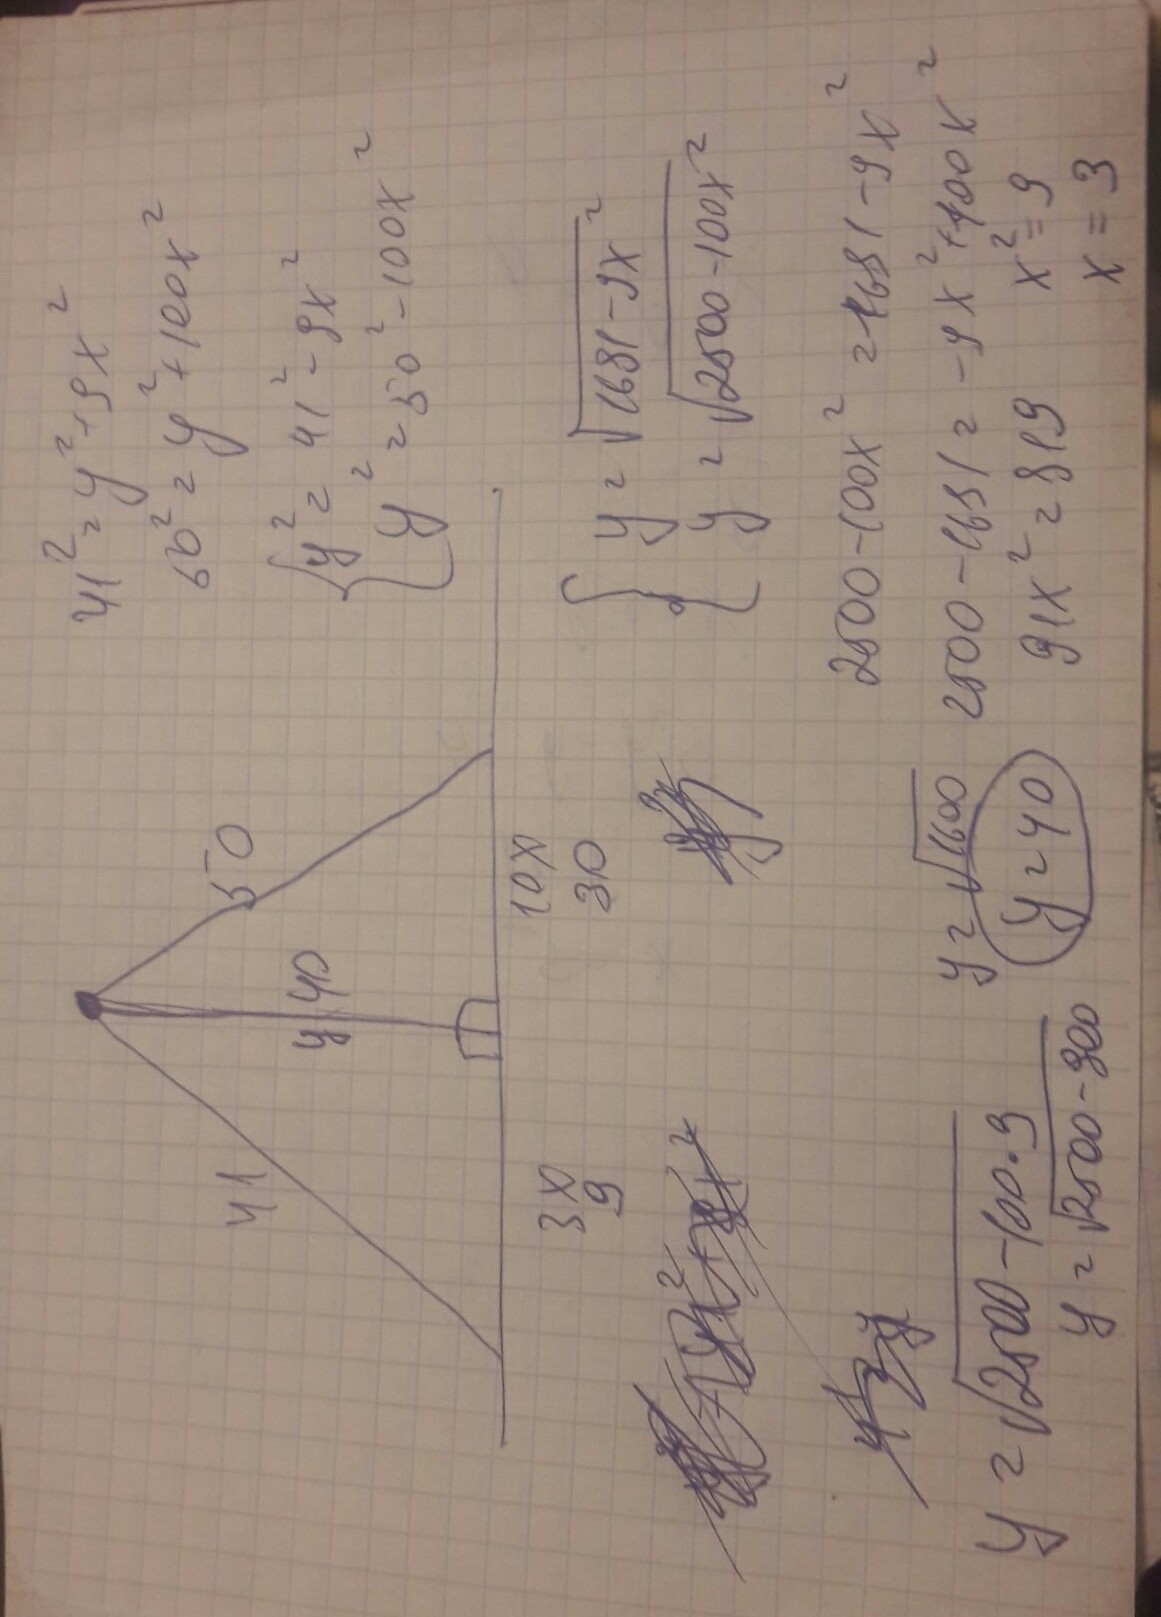 41
50
y 40
3x
9
10x
30
41² = y² + 9x²
50² = y² + 100x²
y² = 41² - 9x²
y² = 50² - 100x²
y = √1681 - 9x²
y = √2500 - 100x²
2500 - 100x² = 1681 - 9x²
2500 - 1681 = -9x² + 100x²
91x² = 819
x² = 9
x = 3
y = √2500 - 100·9
y = √2500 - 900
y = √1600
y = 40